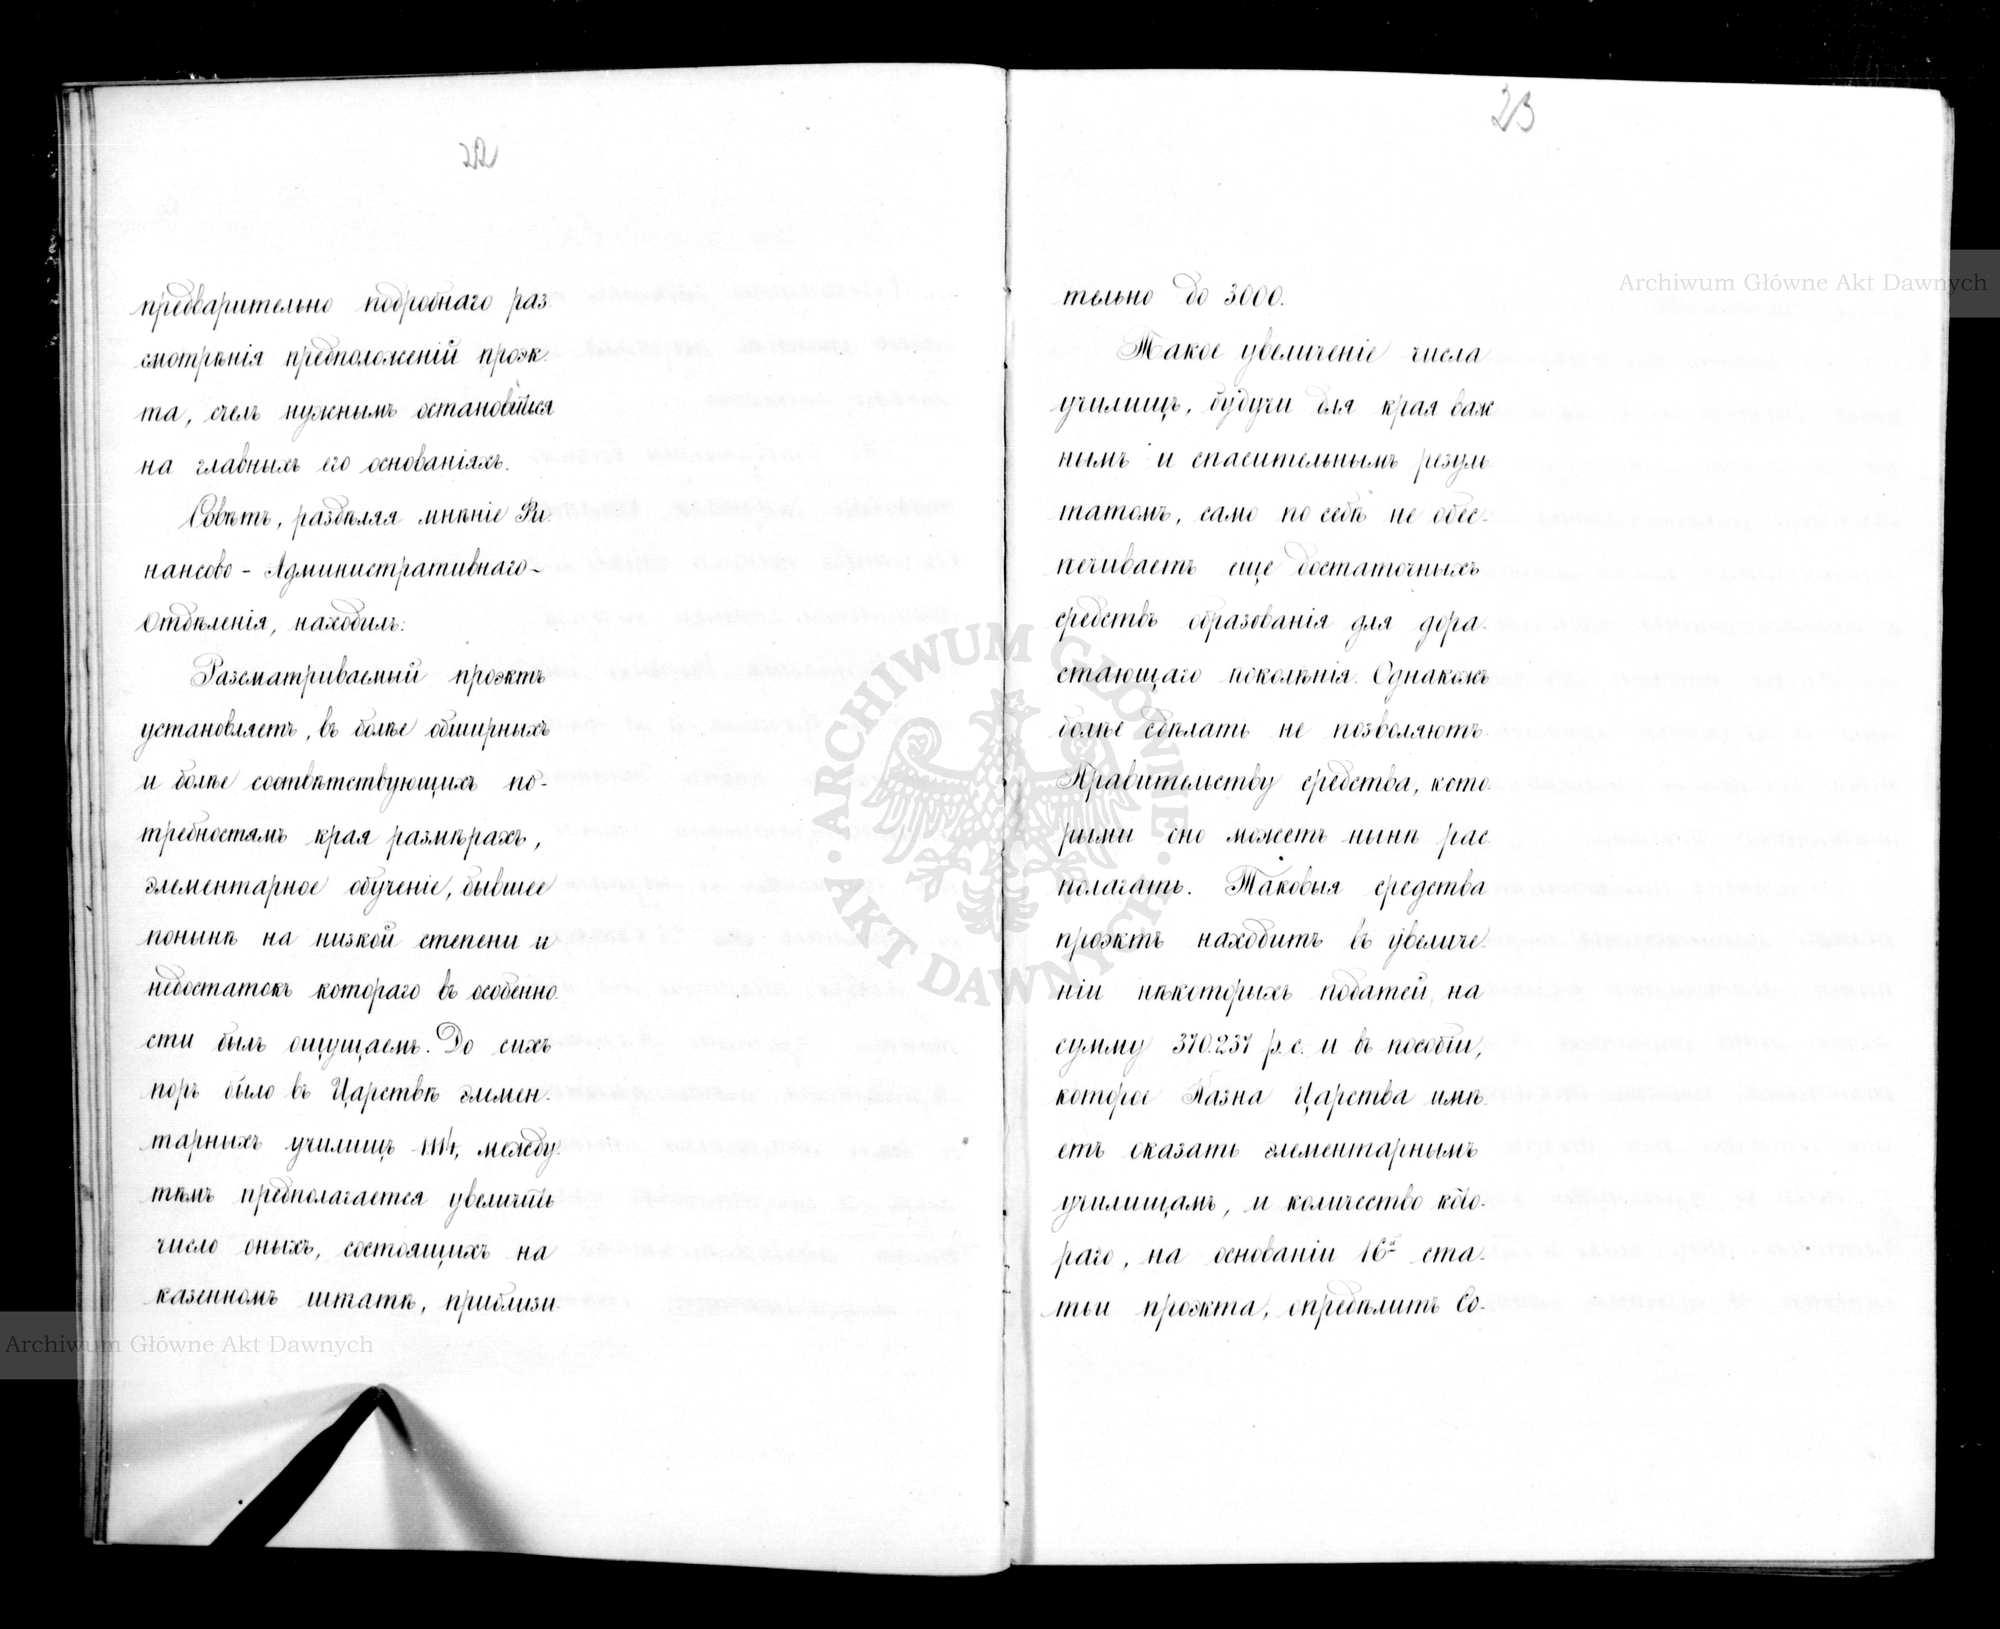 22
предварительно подробнаго раз-
смотрѣнія предположеній проэк-
та, счелъ нужнымъ остановиться
на главныхъ его основаніяхъ.
Совѣтъ, раздѣляя мнѣніе Фи-
нансово - Административнаго -
Отдѣленія, находилъ:
Разсматриваемый проэктъ
установляетъ, въ болѣе обширныхъ
и болѣе соотвѣтствующихъ по-
требностямъ края размѣрахъ,
элементарное обученіе, бывшее
понынѣ на низкой степени и
недостатокъ котораго въ особенно-
сти былъ ощущаемъ. До сихъ
поръ было въ Царствѣ элемен-
тарныхъ училищъ 1114, между
тѣмъ предполагается увеличить
число оныхъ, состоящихъ на
казенномъ штатѣ, приблизи-
23
тельно до 3000.
Такое увеличеніе числа
училищъ, будучи для края важ
нымъ и спасительнымъ резуль-
татомъ, само по себѣ не обез-
печиваетъ еще достаточныхъ
средствъ образованія для дора-
стающаго поколѣнія. Однакожъ
болѣе сдѣлать не позволяютъ
Правительству средства, кото-
рыми оно можетъ нынѣ рас
полагать. Таковыя средства
проэктъ находитъ въ увеличе
ніи нѣкоторыхъ податей, на
сумму 370.237 р. с. и въ пособіи,
которое Казна Царства имѣ-
етъ оказать элементарнымъ
училищамъ, и количество кото-
раго, на основаніи 16й ста-
тьи проэкта, опредѣлитъ Со-
Archiwum Główne Akt Dawnych
Archiwum Główne Akt Dawnych
ARCHIWUM GŁÓWNE
AKT DAWNYCH